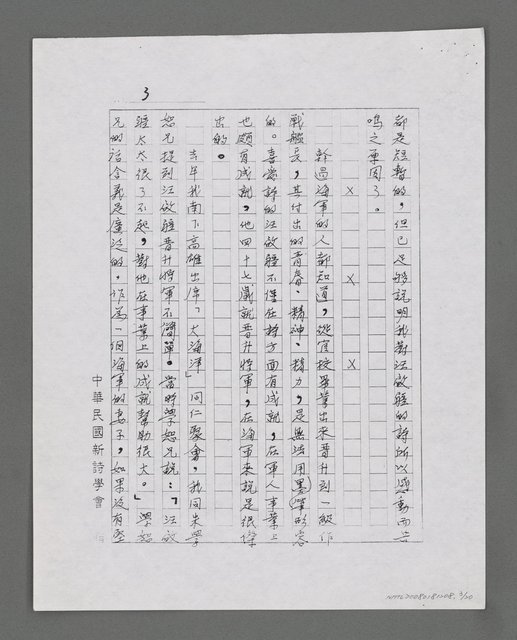 3
都是短暫的，但已足够說明我對汪啟疆的詩所以感動而共
鳴之原因了。
× × ×
幹過海軍的人都知道，從官校畢業出來晉升到一級作
戰艦長，其付出的青春、精神、精力，是無法用筆墨形容
的。喜愛詩的汪啟疆不僅在詩方面有成就，在軍人事業上
也頗有成就，他四十七歲就晉升將軍，在海軍來說是很傑
出的。
去年我南下高雄出席「大海洋」同仁聚會，我同朱學
恕兄提到汪啟疆晉升將軍不簡單。當時學恕兄說：「汪啟
疆太太很了不起，對他在事業上的成就幫助很大。」學恕
兄的話含義是廣泛的。作為一個海軍的妻子，如果沒有堅
中華民國新詩學會
NMTL20080181208 3/20